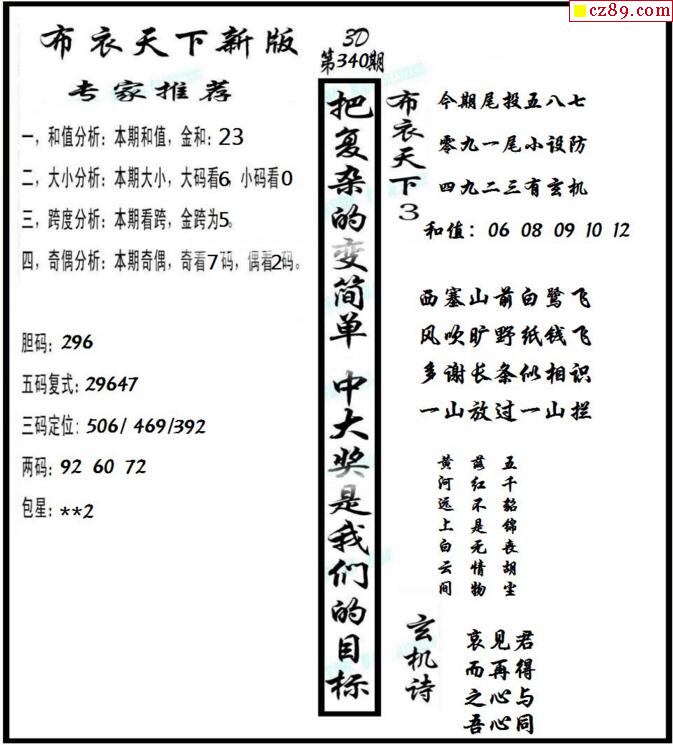 cz89.com
布衣天下新版
专家推荐
一，和值分析：本期和值，金和：23
二，大小分析：本期大小，大码看6，小码看0
三，跨度分析：本期看跨，金跨为5。
四，奇偶分析：本期奇偶，奇看7码，偶看2码。
胆码：296
五码复式：29647
三码定位：506/ 469/392
两码：92 60 72
包星：**2
3D
第340期
把复杂的变简单 中大奖是我们的目标
布衣天下3
今期尾投五八七
零九一尾小设防
四九二三有玄机
和值：06 08 09 10 12
西塞山前白鹭飞
风吹旷野纸钱飞
多谢长条似相识
一山放过一山拦
五千貂锦丧胡尘
落红不是无情物
黄河远上白云间
玄机诗
哀见君
而再得
之心与
吾心同